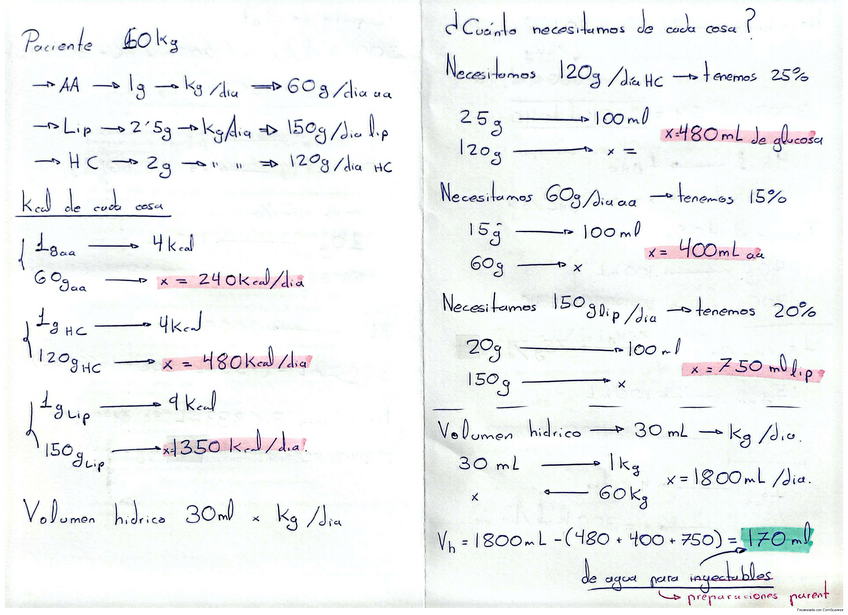 Paciente 60kg
→ AA → 1g → kg/dia ⇒ 60g/dia aa
→ Lip → 2'5g → kg/dia ⇒ 150g/dia lip
→ HC → 2g → " " ⇒ 120g/dia HC
Kcal de cada cosa
1g aa → 4 kcal
60g aa → x = 240kcal/dia
1g HC → 4kcal
120g HC → x = 480kcal/dia
1g Lip → 9 kcal
150g Lip → x=1350 kcal/dia.
Volumen hidrico 30ml x kg/dia
¿Cuánto necesitamos de cada cosa?
Necesitamos 120g/dia HC → tenemos 25%
25g → 100ml
120g → x =
x=480mL de glucosa
Necesitamos 60g/dia aa → tenemos 15%
15g → 100ml
60g → x
x = 400mL aa
Necesitamos 150g lip/dia → tenemos 20%
20g → 100ml
150g → x
x = 750 ml lip
Volumen hidrico → 30 mL → kg/dia.
30 mL → 1kg
x ← 60kg
x = 1800mL/dia.
Vh = 1800mL - (480 + 400 + 750) = 170 ml
de agua para inyectables
↳ preparaciones parent
Escaneado con CamScanner